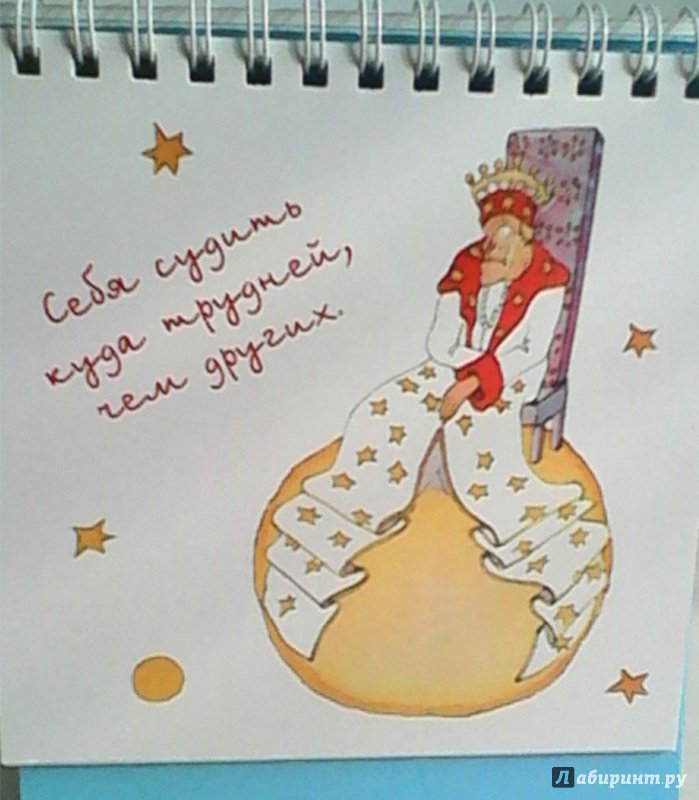 Себя судить
куда трудней,
чем других.
Лабиринт.ру